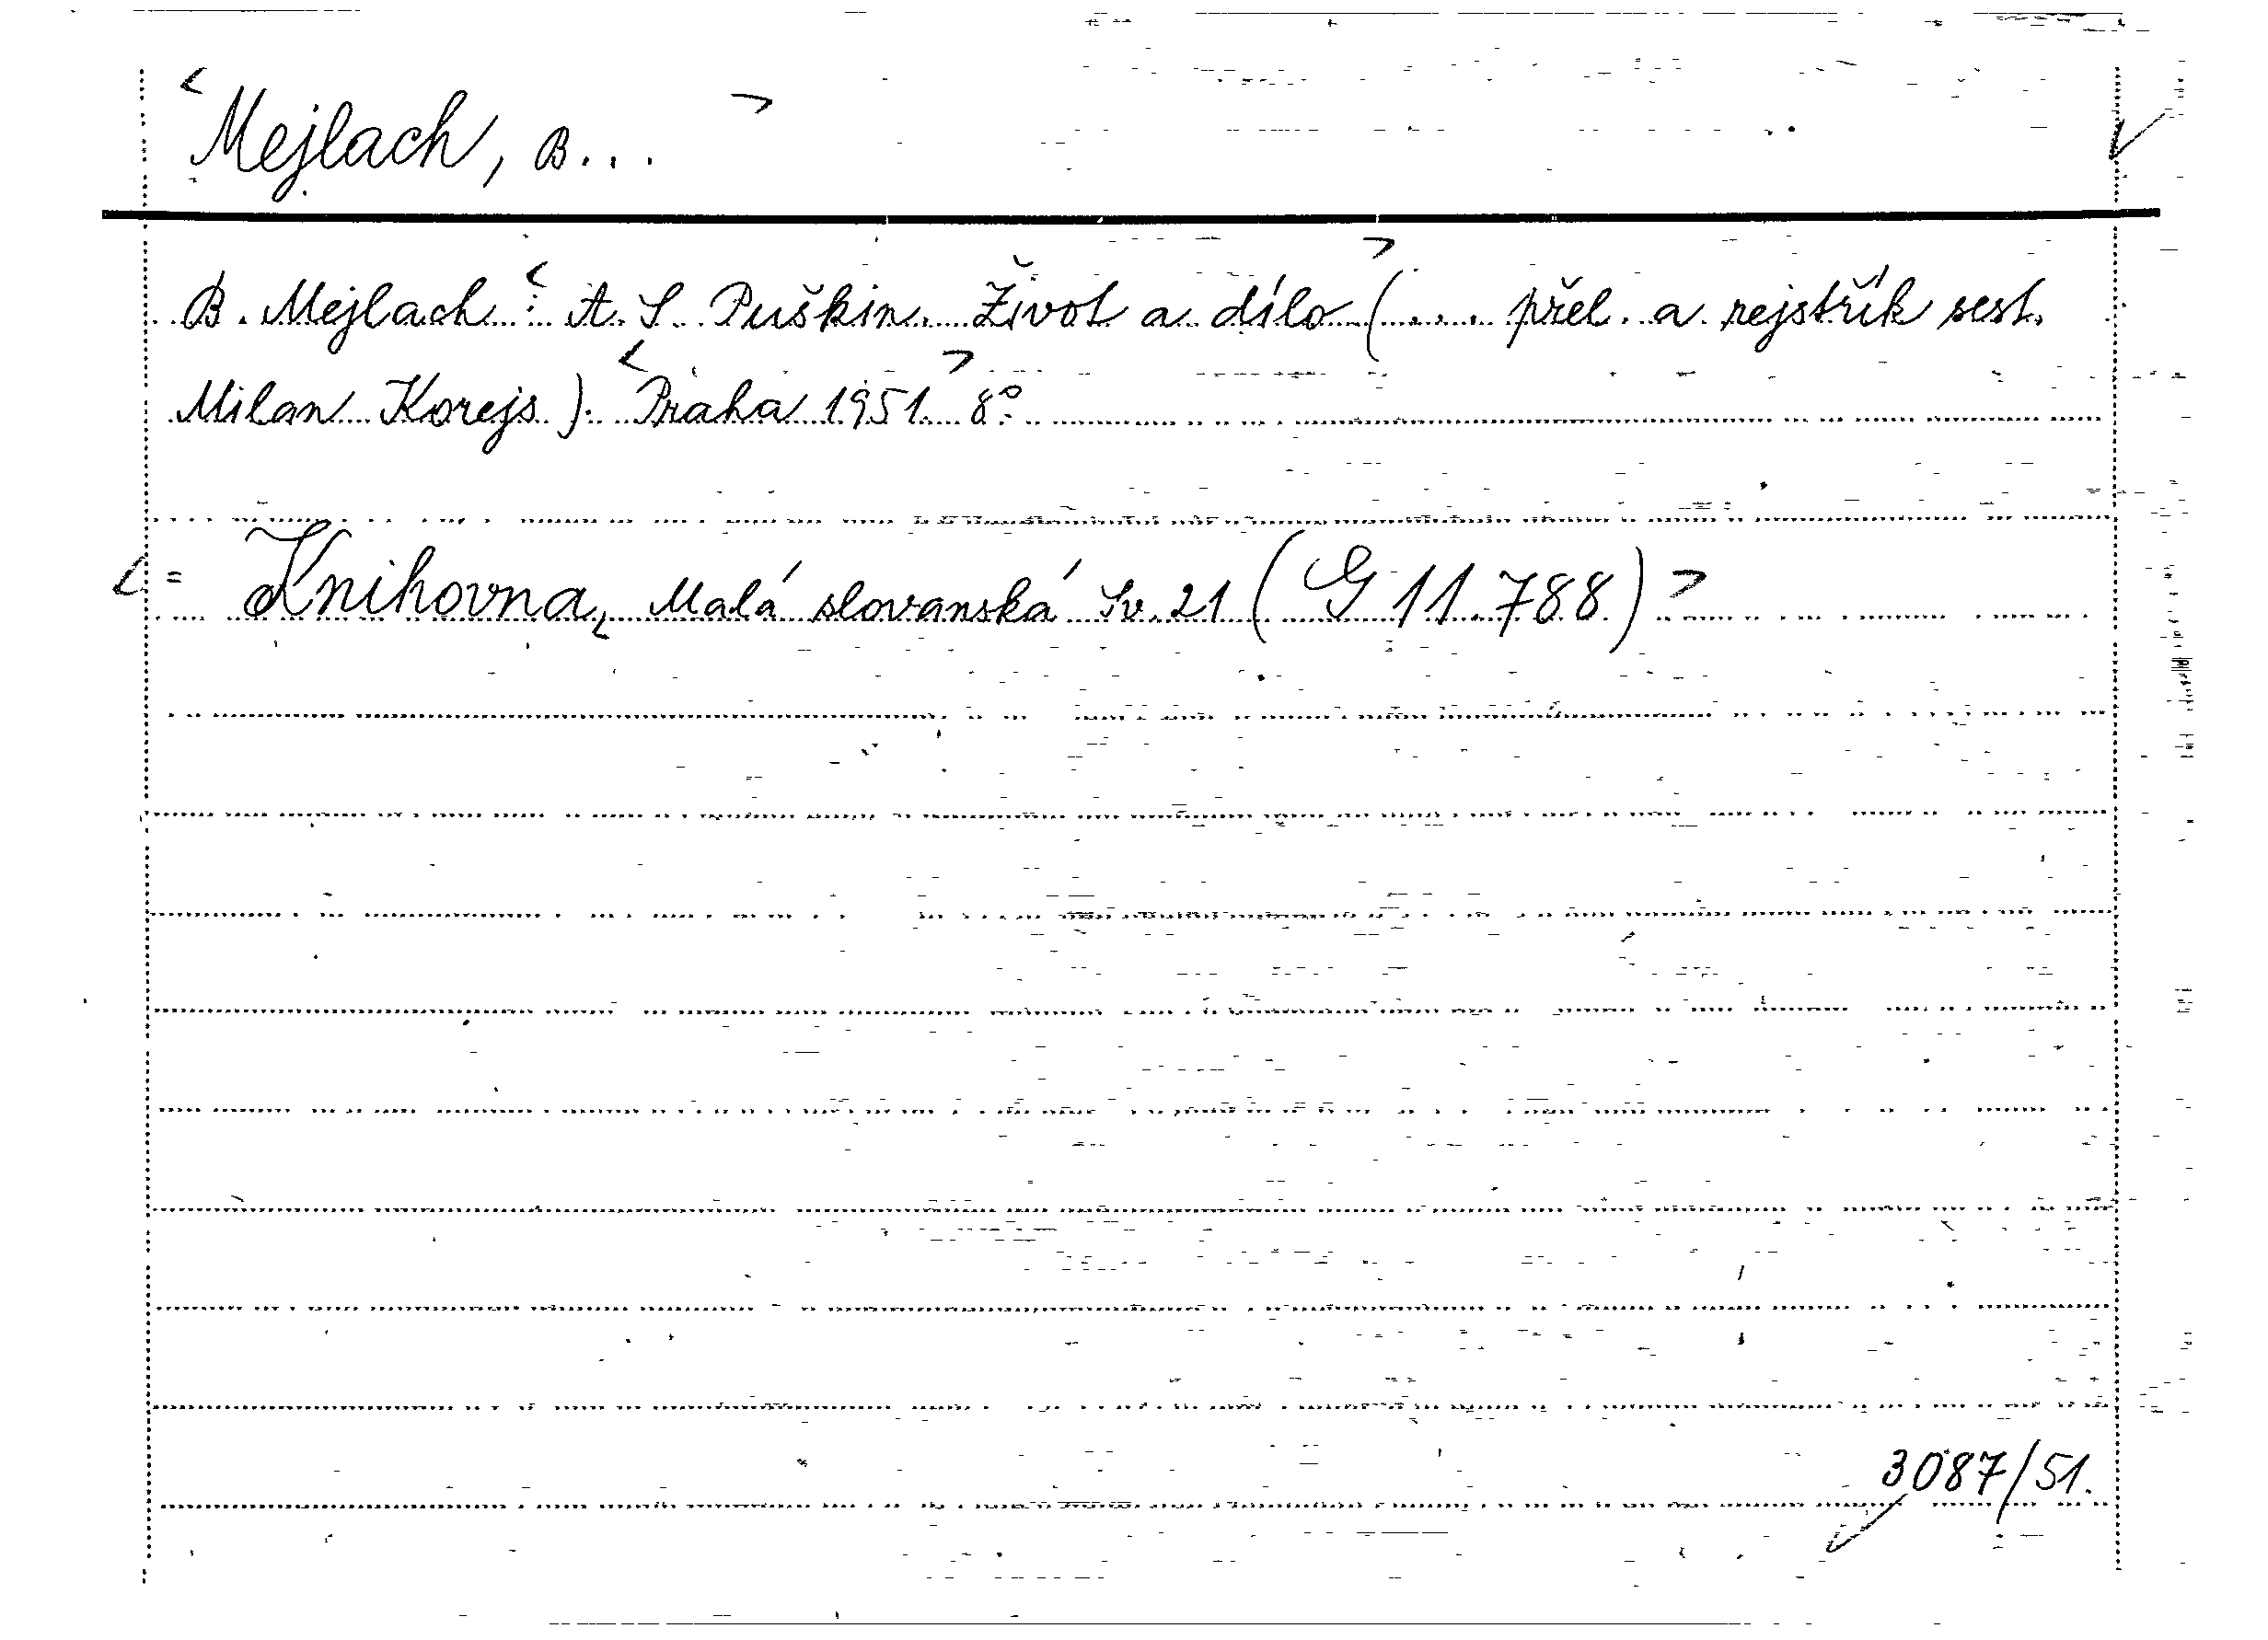 <Mejlach, B...>
B. Mejlach: <A. S. Puškin. Život a dílo> (... přel. a rejstřík sest.
Milan Korejs). <Praha 1951.> 8°.
<= Knihovna, Malá slovanská Sv. 21 (G 11.788)>
3087/51.